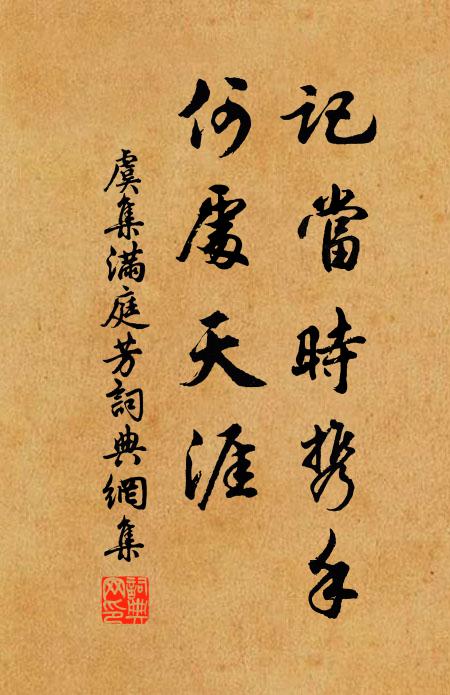 記當時携手
何處天涯
虞集滿庭芳詞典網集
詞典網印